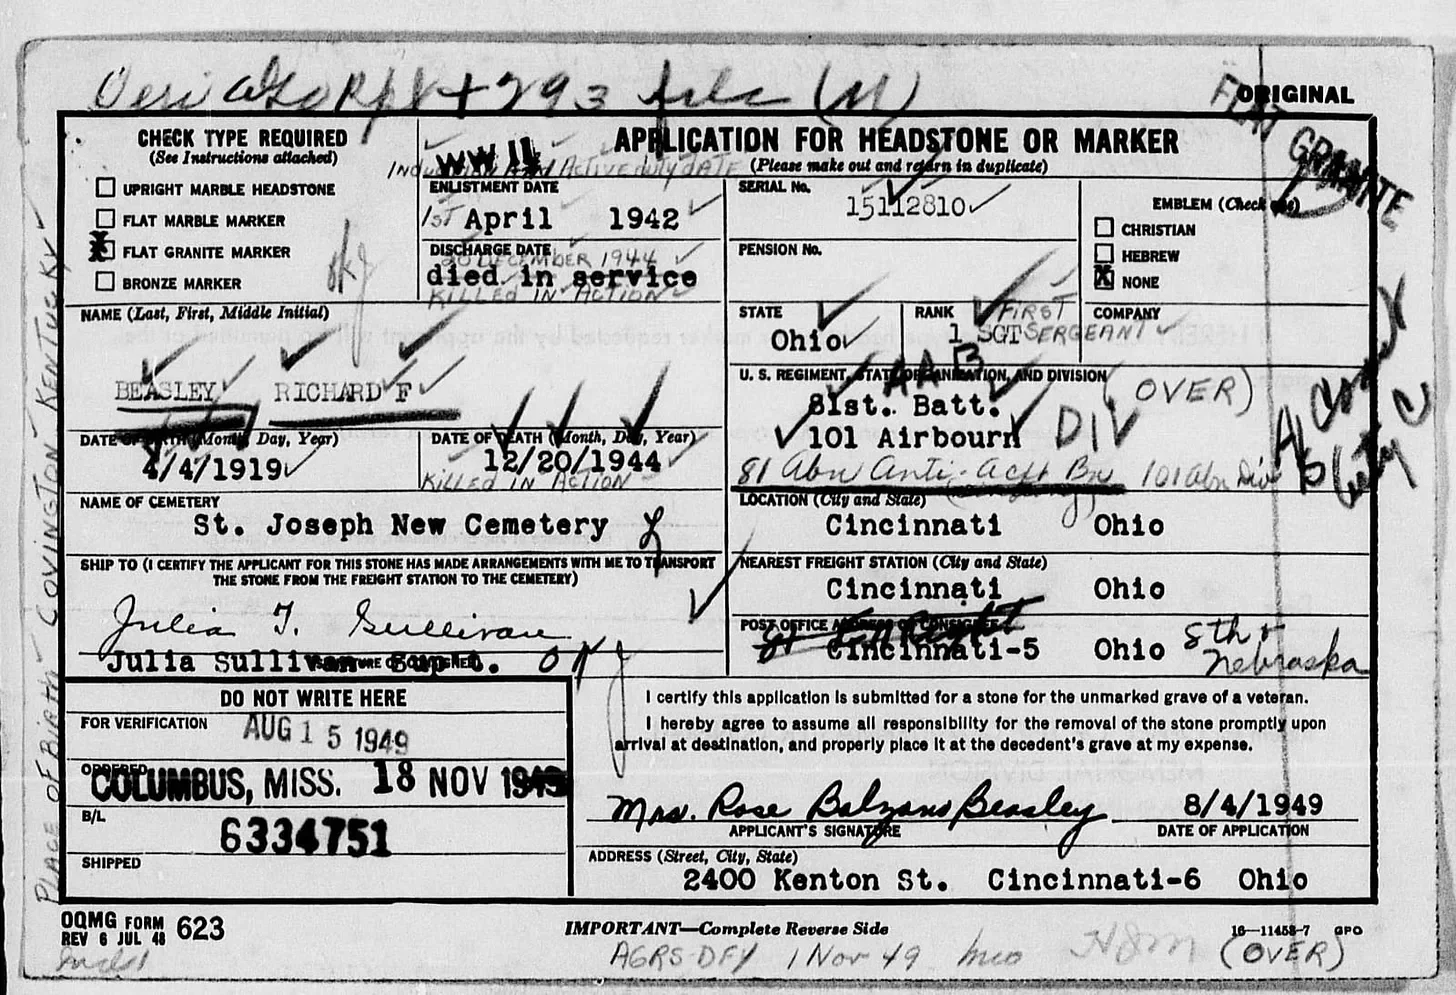 + 293 file (M)
ORIGINAL
FLAT GRANITE
CHECK TYPE REQUIRED
(See Instructions attached)
UPRIGHT MARBLE HEADSTONE
FLAT MARBLE MARKER
X FLAT GRANITE MARKER
BRONZE MARKER
WW II
ACTIVE DUTY DATE
ENLISTMENT DATE
1ST April 1942
DISCHARGE DATE
20 DECEMBER 1944
died in service
KILLED IN ACTION
APPLICATION FOR HEADSTONE OR MARKER
(Please make out and return in duplicate)
SERIAL No.
15112810
PENSION No.
EMBLEM (Check one)
CHRISTIAN
HEBREW
X NONE
NAME (Last, First, Middle Initial)
BEASLEY RICHARD F
STATE
Ohio
RANK
FIRST
1 SGT SERGEANT
COMPANY
U. S. REGIMENT, STATE ORGANIZATION, AND DIVISION
AAB
81st. Batt. (OVER)
101 Airbourn DIV
81 Abn Anti-Acft Bn 101 Abn Div
DATE OF BIRTH (Month, Day, Year)
4/4/1919
DATE OF DEATH (Month, Day, Year)
12/20/1944
KILLED IN ACTION
NAME OF CEMETERY
St. Joseph New Cemetery
LOCATION (City and State)
Cincinnati Ohio
SHIP TO (I CERTIFY THE APPLICANT FOR THIS STONE HAS MADE ARRANGEMENTS WITH ME TO TRANSPORT
THE STONE FROM THE FREIGHT STATION TO THE CEMETERY)
Julia T. Sullivan
Julia Sullivan Supt. OK
SIGNATURE OF CONSIGNEE
NEAREST FREIGHT STATION (City and State)
Cincinnati Ohio
POST OFFICE ADDRESS OF CONSIGNEE
Cincinnati-5 Ohio
8th &
Nebraska
DO NOT WRITE HERE
FOR VERIFICATION
AUG 15 1949
ORDERED
COLUMBUS, MISS. 18 NOV 1949
B/L
6334751
SHIPPED
I certify this application is submitted for a stone for the unmarked grave of a veteran.
I hereby agree to assume all responsibility for the removal of the stone promptly upon
arrival at destination, and properly place it at the decedent's grave at my expense.
Mrs. Rose Balzano Beasley 8/4/1949
APPLICANT'S SIGNATURE DATE OF APPLICATION
ADDRESS (Street, City, State)
2400 Kenton St. Cincinnati-6 Ohio
PLACE OF BIRTH - COVINGTON KENTUCKY
OQMG FORM 623
REV 6 JUL 48
IMPORTANT—Complete Reverse Side
16—11458-7 GPO
AGRS-DFY 1 Nov 49
(OVER)